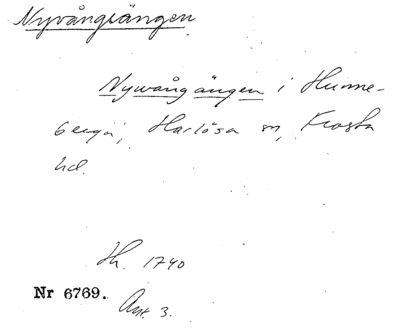 Nyvångsängen
Nyvångängen i Hunne-
berga, Harlösa sn, Frosta
hd.
Hh. 1740
Nr 6769.
Ant. 3.